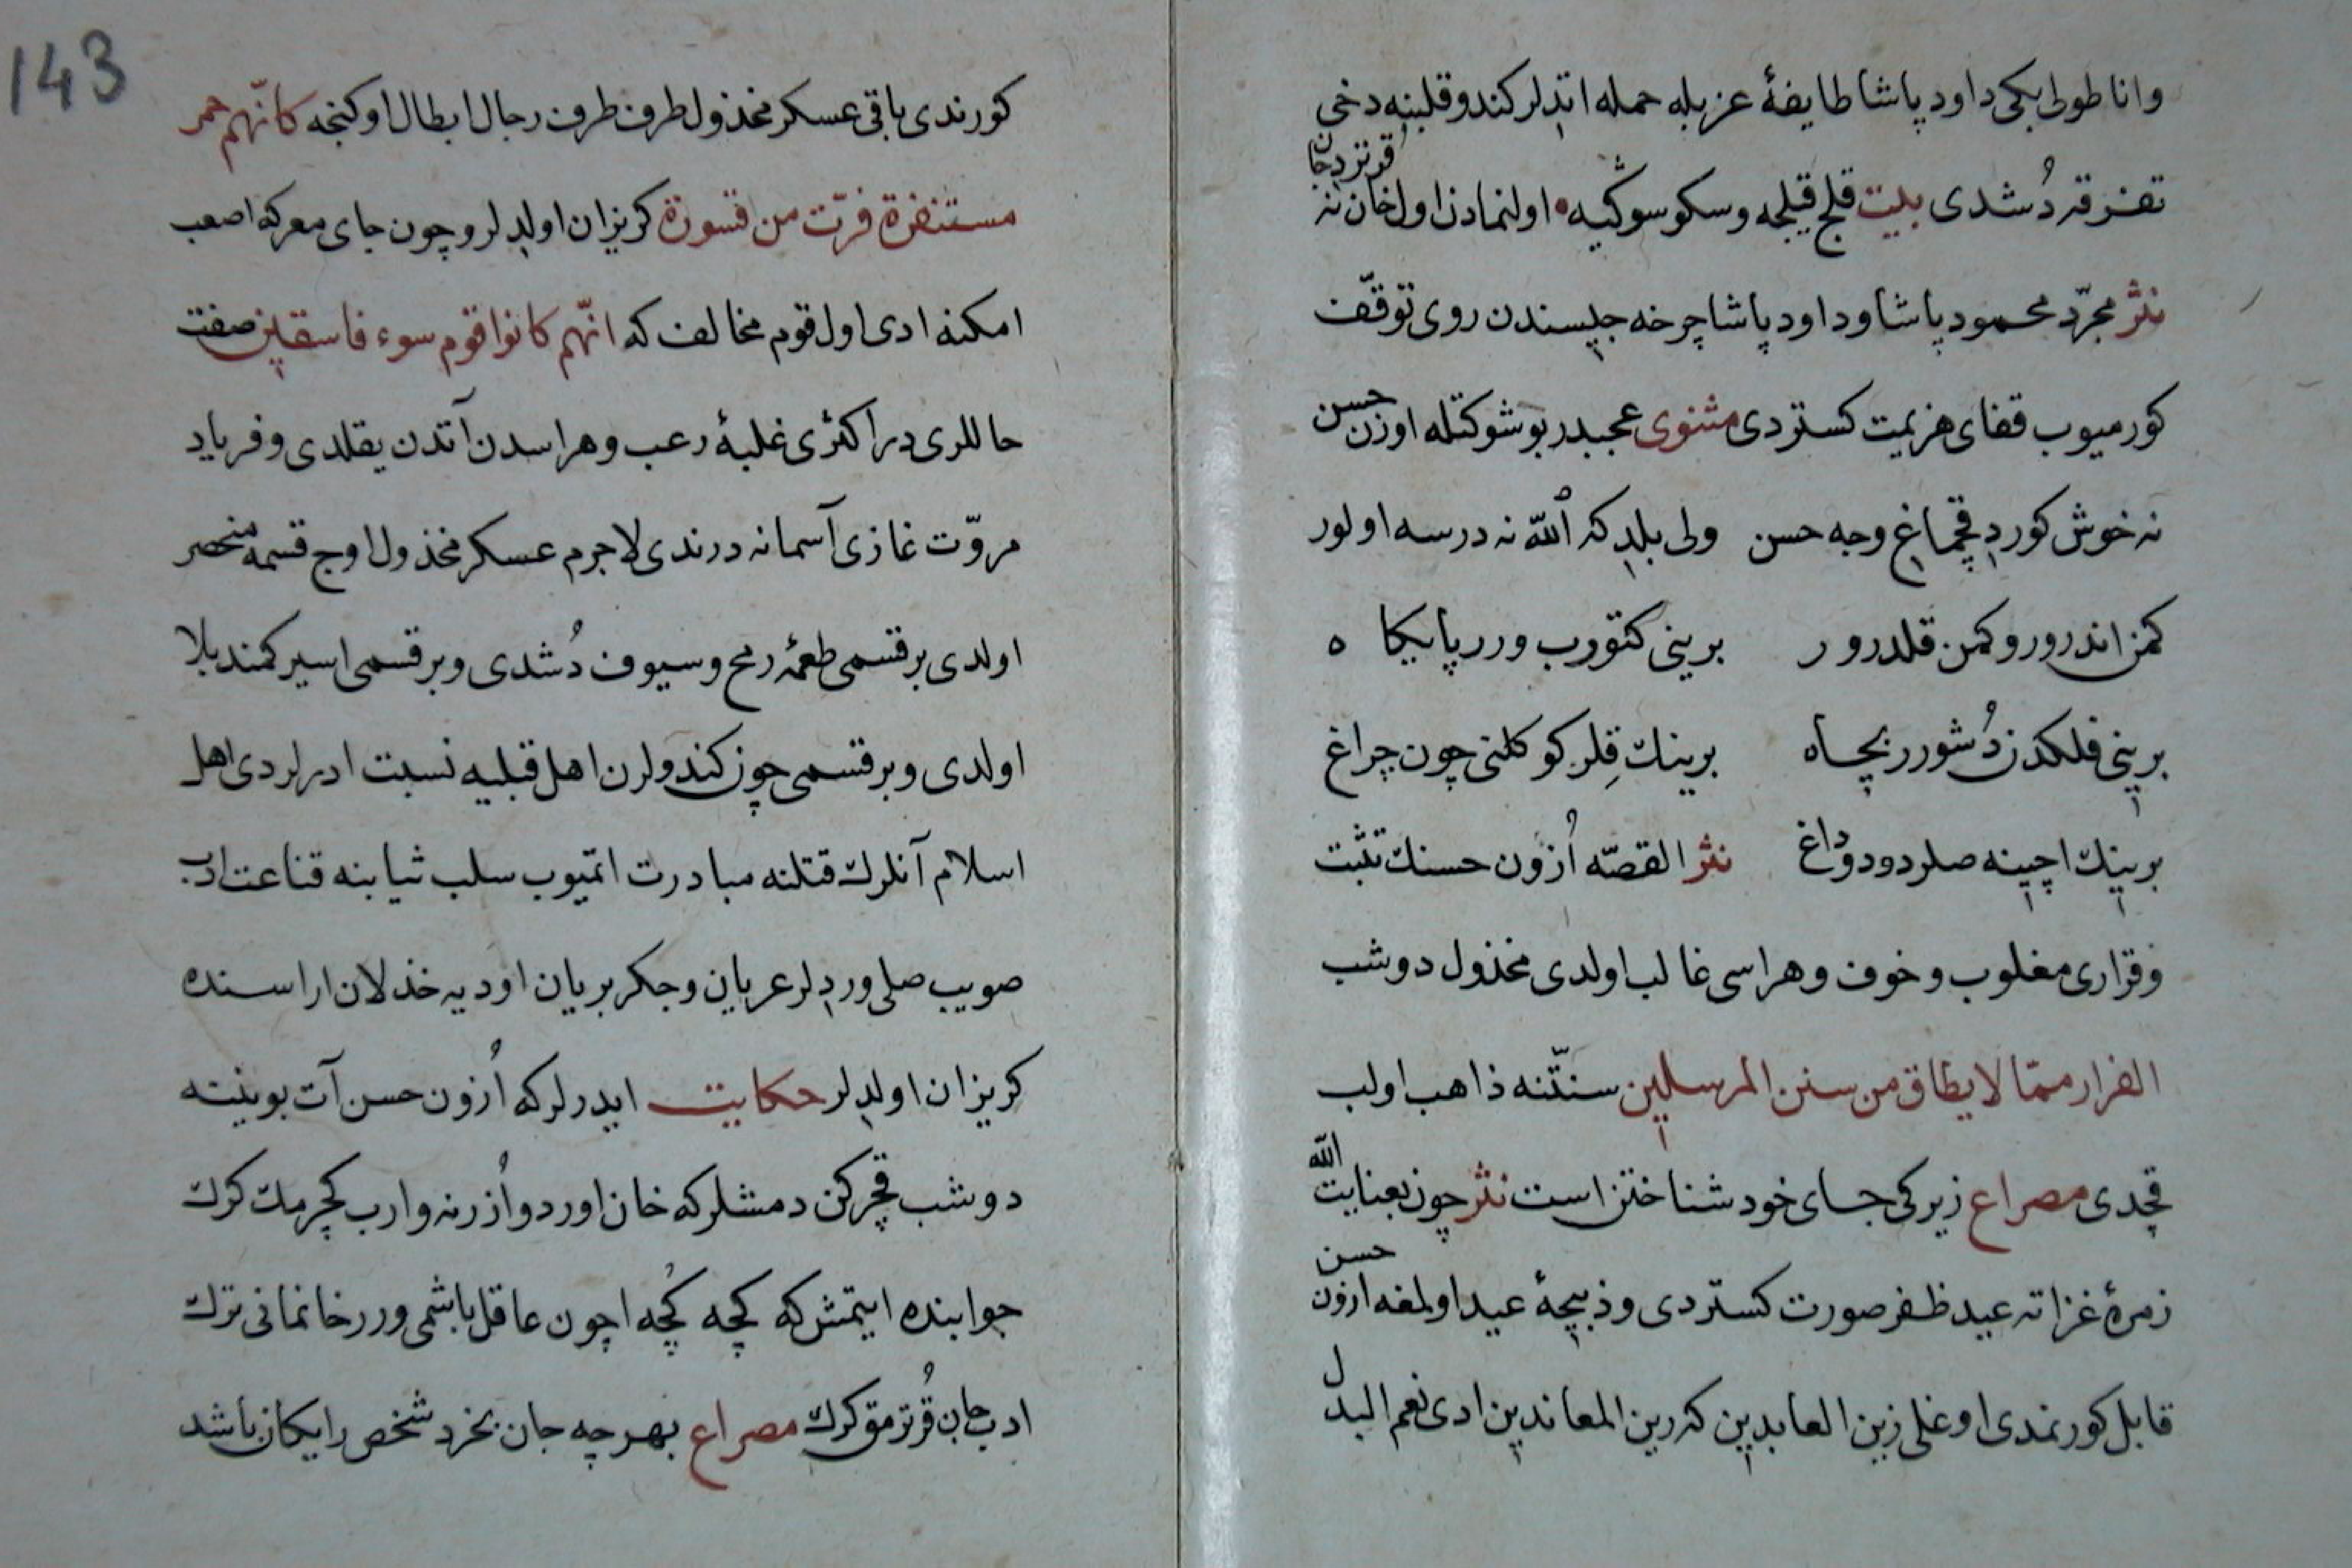 وانا طولی بکی داود پاشا طایفهٔ عز بله حمله اتدلر کندو قلبنه دخی
تفرقه دُشدی بیت قلج قیلجه و سکو سوکیه اولنمادن اول خان نه قورتردجان
نثر مجرّد محمود پاشا و داود پاشا چرخه جیسندن روی توقّف
کورمیوب قفای هزیمت کستردی مثنوی عجبدر بو شوکتله اوزن حسن
نه خوش کوردی قچماغی وجه حسن ولی بلدکه الله نه درسه اولور
کمن اندرورو کمن قلدرور برینی کتورب ورر پایکاه
برینی فلکدن دُشورر بچاه برینك قِلر کوکلنی چون چراغ
برینك اچینه صلر دود و داغ نثر القصّه اُزون حسنك تثبت
و قراری مغلوب و خوف و هراسی غالب اولدی مخذول دوشب
الفرار ممّا لا یطاق من سنن المرسلین سنّتنه ذاهب اولب
قچدی مصراع زیرکی جای خود شناختن است نثر چون بعنایت الله
زمرهٔ غزاته عید ظفر صورت کستردی و ذبیحهٔ عید اولمغه ازون حسن
قابل کورنمدی اوغلی زین العابدین که رین المعاندین ادی نعم البدل
143
کورندی باقی عسکر مخذول طرف طرف رجال ابطال اوکنجه کانّهم حمر
مستنفرة فرّت من قسورة کریزان اولدلر و چون جای معرکه اصعب
امکنه ادی اول قوم مخالف که انّهم کانوا قوم سوء فاسقین صفت
حاللری در اکثری غلبهٔ رعب و هراسدن آتدن یقلدی و فریاد
مروّت غازی آسمانه درندی لاجرم عسکر مخذول اوج قسمه منحصر
اولدی بر قسمی طعمهٔ رمح و سیوف دُشدی و بر قسمی اسیر کمند بلا
اولدی و بر قسمی چون کندولرن اهل قبلیه نسبت ادرلردی اهل
اسلام آنلرك قتلنه مبادرت اتمیوب سلب ثیابنه قناعت ادب
صویب صلی وردلر عریان و جکر بریان اودیه خذلان اراسنده
کریزان اولدلر حکایت ایدرلر که اُزون حسن آت بوینینه
دوشب قچرکن دمشلر که خان اوردو اُزرنه وارب کچرمك کرك
جوابنده ایتمش که کچه کُچه اچون عاقل باشمی ورر خانمانی ترك
ادب جان قُرترمق کرك مصراع بهر چه جان بخرد شخص رایکان باشد